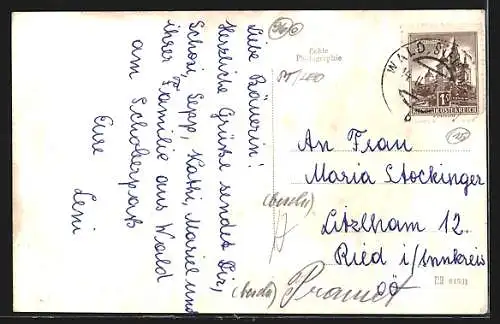 Liebe Bäuerin!
Herzliche Grüße sendet Dir,
Schozi, Sepp, Kathi, Mariel und
ihrer Familie aus Wald
am Schoberpaß
Eure
Leni
Echte
Photographie
WALD
REPUBLIK ÖSTERREICH
An Frau
Maria Stockinger
Litzlham 12.
Ried i/Innkreis
OÖ
Pramet